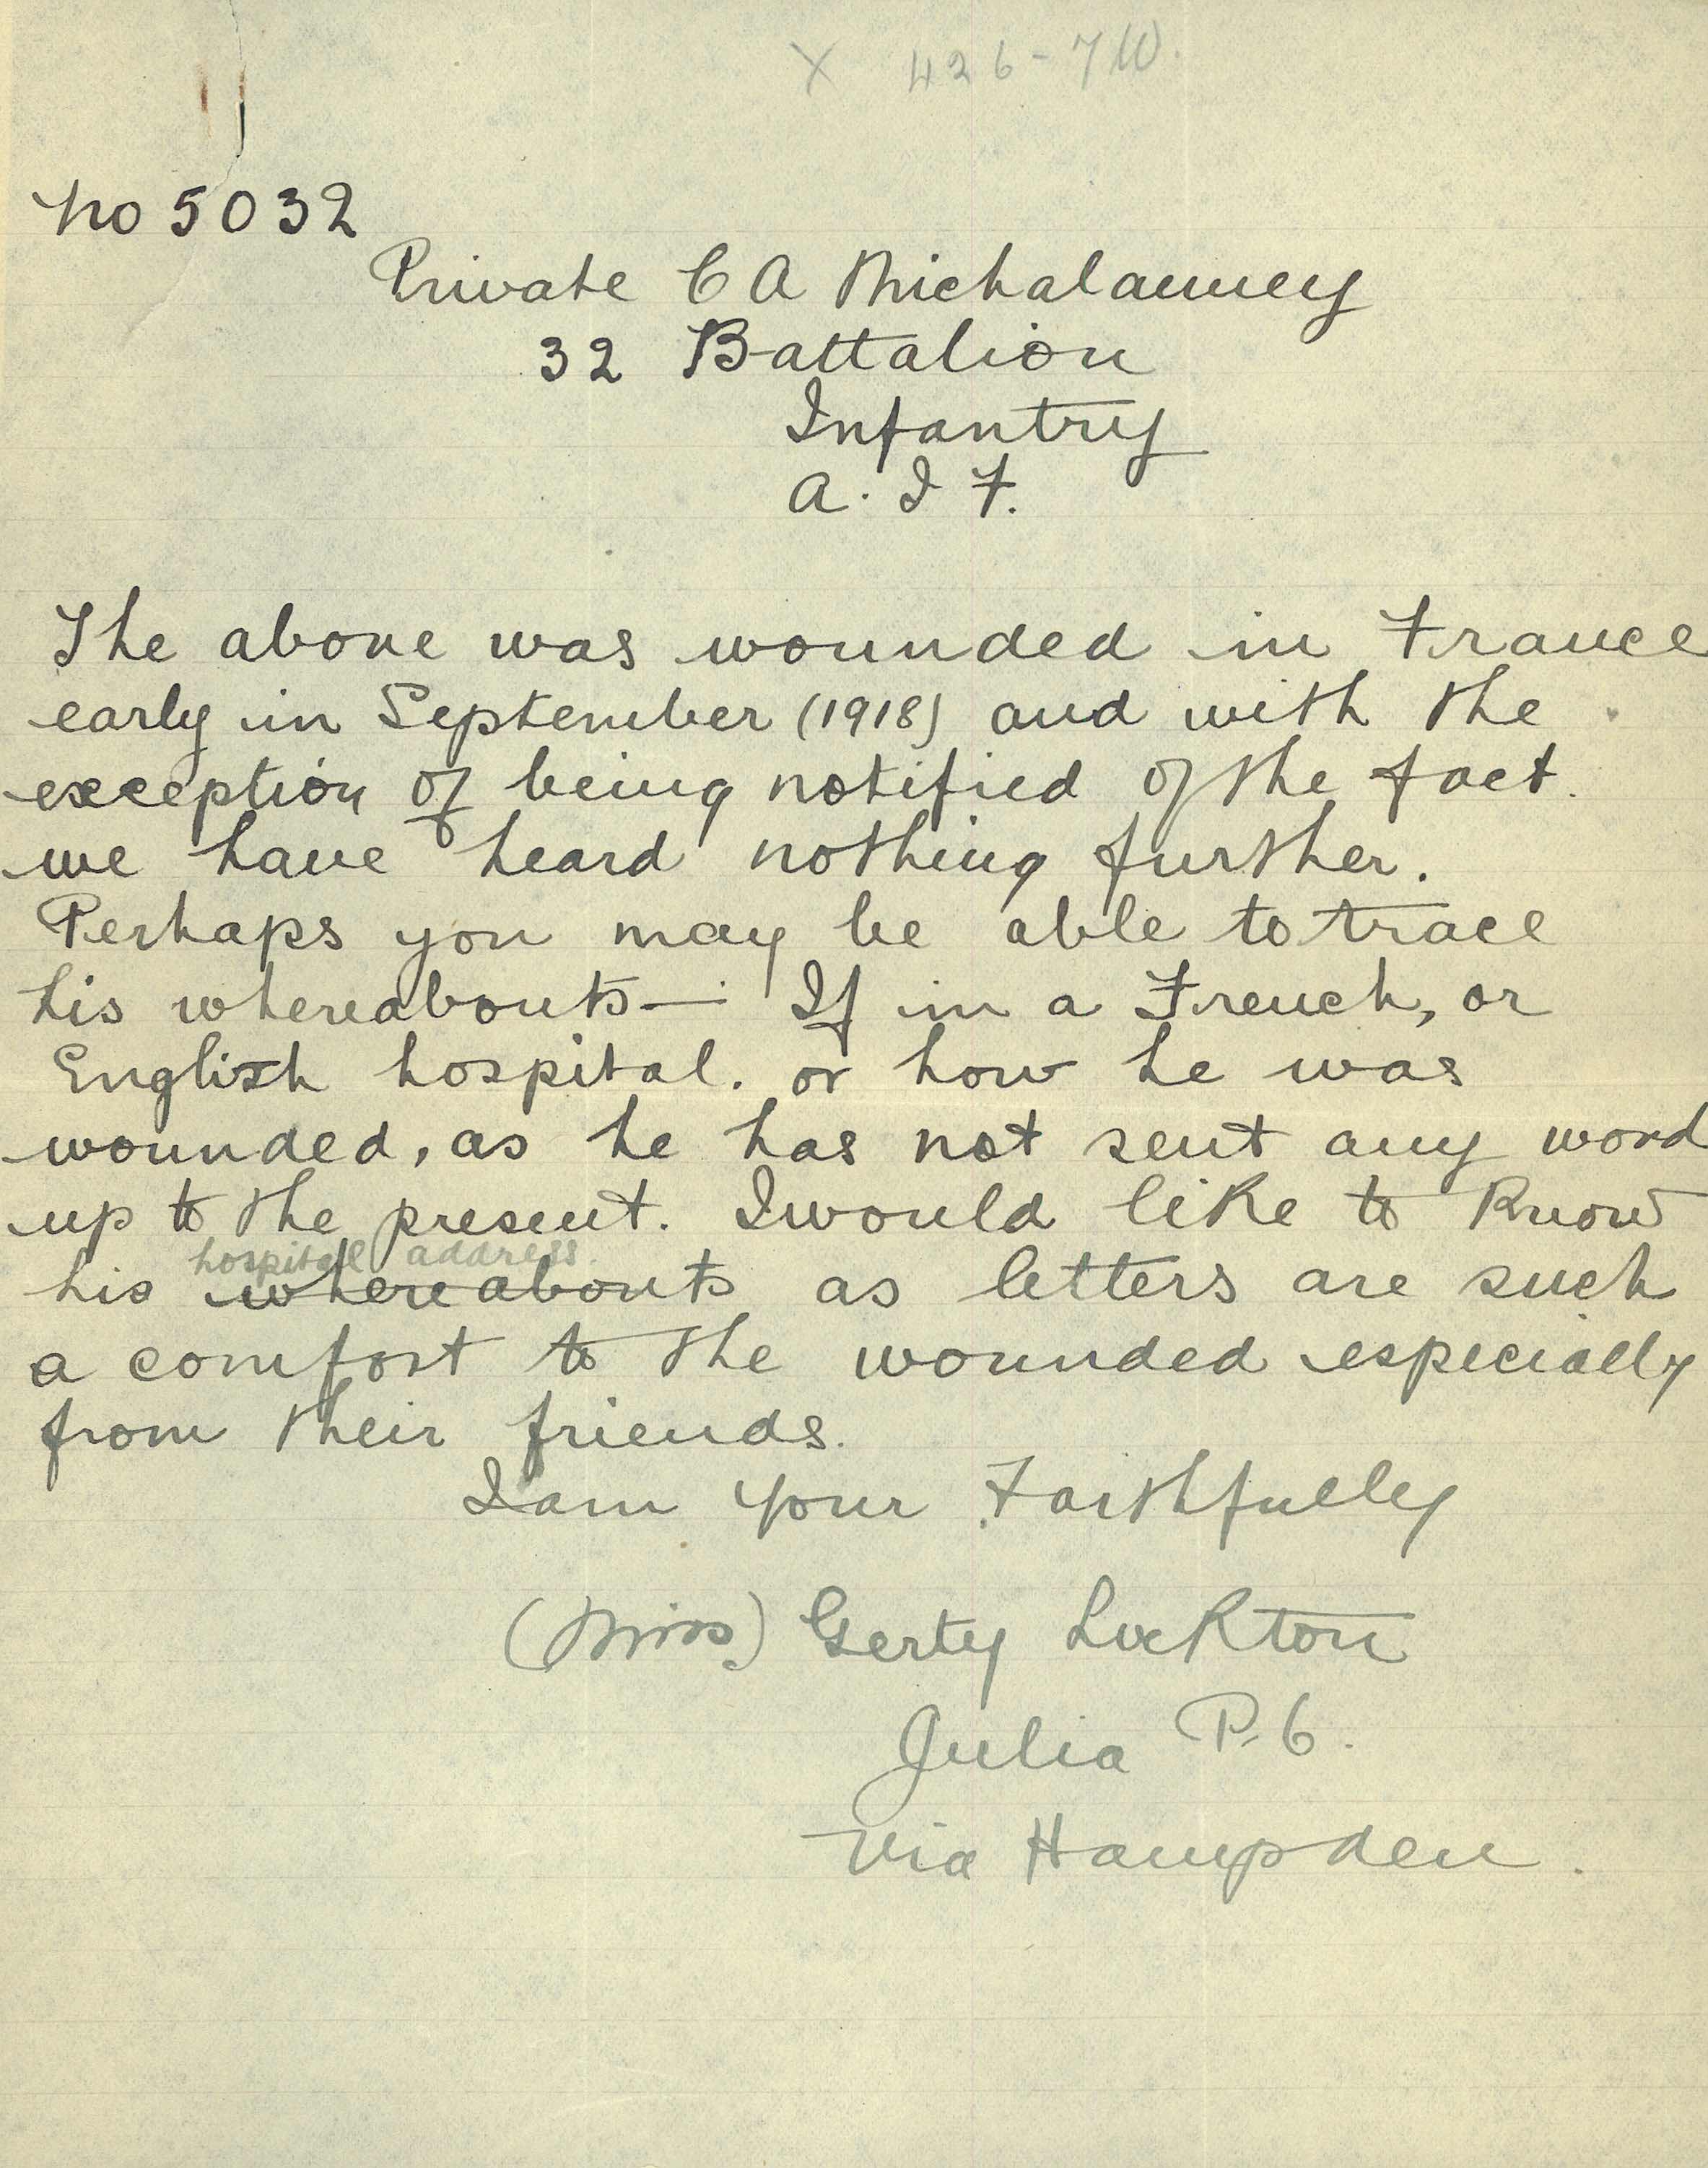 X 426-7W.
No 5032
Private C A Michalanney
32 Battalion
Infantry
A. I F.
The above was wounded in France
early in September (1918) and with the
exception of being notified of the fact.
we have heard nothing further.
Perhaps you may be able to trace
his whereabouts— If in a French, or
English hospital. or how he was
wounded, as he has not sent any word
up to the present. I would like to know
hospital address.
his whereabouts as letters are such
a comfort to the wounded especially
from their friends.
I am your Faithfully
(Miss) Gerty Luckton
Julia P.C.
Via Hampden.